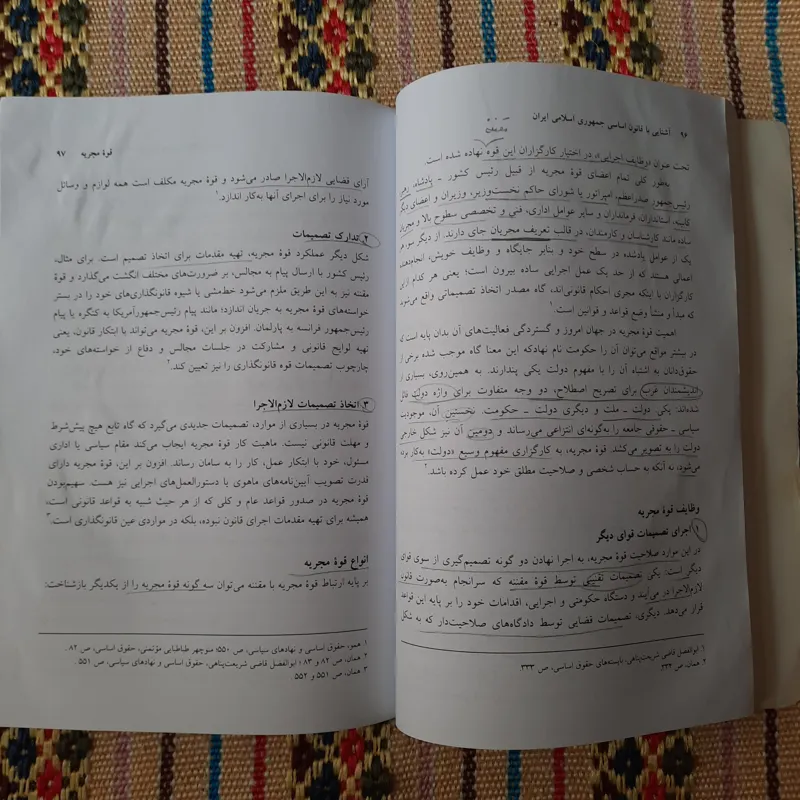 ۹۶ آشنایی با قانون اساسی جمهوری اسلامی ایران
تحت عنوان «وظایف اجرایی»، در اختیار کارگزاران این قوه نهاده شده است.
به‌طور کلی تمام اعضای قوهٔ مجریه از قبیل رئیس کشور ـ پادشاه، رهبر،
رئیس‌جمهور صدراعظم، امپراتور یا شورای حاکم نخست‌وزیر، وزیران و اعضای دیگر
کابینه، استانداران، فرمانداران و سایر عوامل اداری، فنی و تخصصی سطوح بالا و مجریان
ساده مانند کارشناسان و کارمندان، در قالب تعریف مجریان جای دارند. از دیگر سو، هر
یک از عوامل یادشده در سطح خود و بنابر جایگاه و وظایف خویش، انجام‌دهنده
اعمالی هستند که از حد یک عمل اجرایی ساده بیرون است؛ یعنی هر کدام از این
کارگزاران با اینکه مجری احکام قانونی‌اند، گاه مصدر اتخاذ تصمیماتی واقع می‌شوند
که مبدأ و منشأ وضع قواعد و قوانین است.۱
اهمیت قوهٔ مجریه در جهان امروز و گستردگی فعالیت‌های آن بدان پایه است که
در بیشتر مواقع می‌توان آن را حکومت نام نهادکه این معنا گاه موجب شده برخی از
حقوق‌دانان به اشتباه آن را با مفهوم دولت یکی پندارند. به همین‌روی، بسیاری از
اندیشمندان غرب برای تصریح اصطلاح، دو وجه متفاوت برای واژه دولت قائل
شده‌اند: یکی دولت ـ ملت و دیگری دولت ـ حکومت. نخستین آن، موجودیت
سیاسی ـ حقوقی جامعه را به‌گونه‌ای انتزاعی می‌رساند و دومین آن نیز شکل خارجی
دولت را به تصویر می‌کشد. قوهٔ مجریه، به کارگزاری مفهوم وسیع «دولت» به‌کار برده
می‌شود، نه آنکه به حساب شخصی و صلاحیت مطلق خود عمل کرده باشد.۲
وظایف قوهٔ مجریه
۱ اجرای تصمیمات قوای دیگر
در این موارد صلاحیت قوهٔ مجریه، به اجرا نهادن دو گونه تصمیم‌گیری از سوی قوای
دیگر است: یکی تصمیمات تقنینی توسط قوهٔ مقننه که سرانجام به‌صورت قانون
لازم‌الاجرا در می‌آیند و دستگاه حکومتی و اجرایی، اقدامات خود را بر پایه این قواعد
قرار می‌دهد. دیگری، تصمیمات قضایی توسط دادگاه‌های صلاحیت‌دار که به شکل
۱ ابوالفضل قاضی شریعت‌پناهی، بایسته‌های حقوق اساسی، ص ۳۳۳
۲ همان، ص ۳۳۲
قوهٔ مجریه ۹۷
آرای قضایی لازم‌الاجرا صادر می‌شود و قوهٔ مجریه مکلف است همه لوازم و وسائل
مورد نیاز را برای اجرای آنها به‌کار اندازد.۱
۲ تدارک تصمیمات
شکل دیگر عملکرد قوهٔ مجریه، تهیه مقدمات برای اتخاذ تصمیم است. برای مثال،
رئیس کشور با ارسال پیام به مجالس، بر ضرورت‌های مختلف انگشت می‌گذارد و قوهٔ
مقننه نیز به این طریق ملزم می‌شود خط‌مشی یا شیوه قانونگذاری‌های خود را در بستر
خواسته‌های قوهٔ مجریه به جریان اندازد؛ مانند پیام رئیس‌جمهورآمریکا به کنگره یا پیام
رئیس‌جمهور فرانسه به پارلمان. افزون بر این، قوهٔ مجریه می‌تواند با ابتکار قانون، یعنی
تهیه لوایح قانونی و مشارکت در جلسات مجالس و دفاع از خواسته‌های خود،
چارچوب تصمیمات قوه قانونگذاری را نیز تعیین کند.۲
۳ اتخاذ تصمیمات لازم‌الاجرا
قوهٔ مجریه در بسیاری از موارد، تصمیمات جدیدی می‌گیرد که گاه تابع هیچ پیش‌شرط
و مهلت قانونی نیست. ماهیت کار قوهٔ مجریه ایجاب می‌کند مقام سیاسی یا اداری
مسئول، خود با ابتکار عمل، کار را به سامان رساند. افزون بر این، قوهٔ مجریه دارای
قدرت تصویب آیین‌نامه‌های ماهوی یا دستورالعمل‌های اجرایی نیز هست. سهیم‌بودن
قوهٔ مجریه در صدور قواعد عام و کلی که از هر حیث شبیه به قواعد قانونی است،
همیشه برای تهیه مقدمات اجرای قانون نبوده، بلکه در مواردی عین قانونگذاری است.۳
انواع قوهٔ مجریه
بر پایه ارتباط قوهٔ مجریه با مقننه می‌توان سه گونه قوهٔ مجریه را از یکدیگر بازشناخت:
۱ همو، حقوق اساسی و نهادهای سیاسی، ص ۵۵۰؛ منوچهر طباطبایی مؤتمنی، حقوق اساسی، ص ۸۲.
۲ همان، ص ۸۲ و ۸۳ ؛ ابوالفضل قاضی شریعت‌پناهی، حقوق اساسی و نهادهای سیاسی، ص ۵۵۱.
۳ همان، ص ۵۵۱ و ۵۵۲